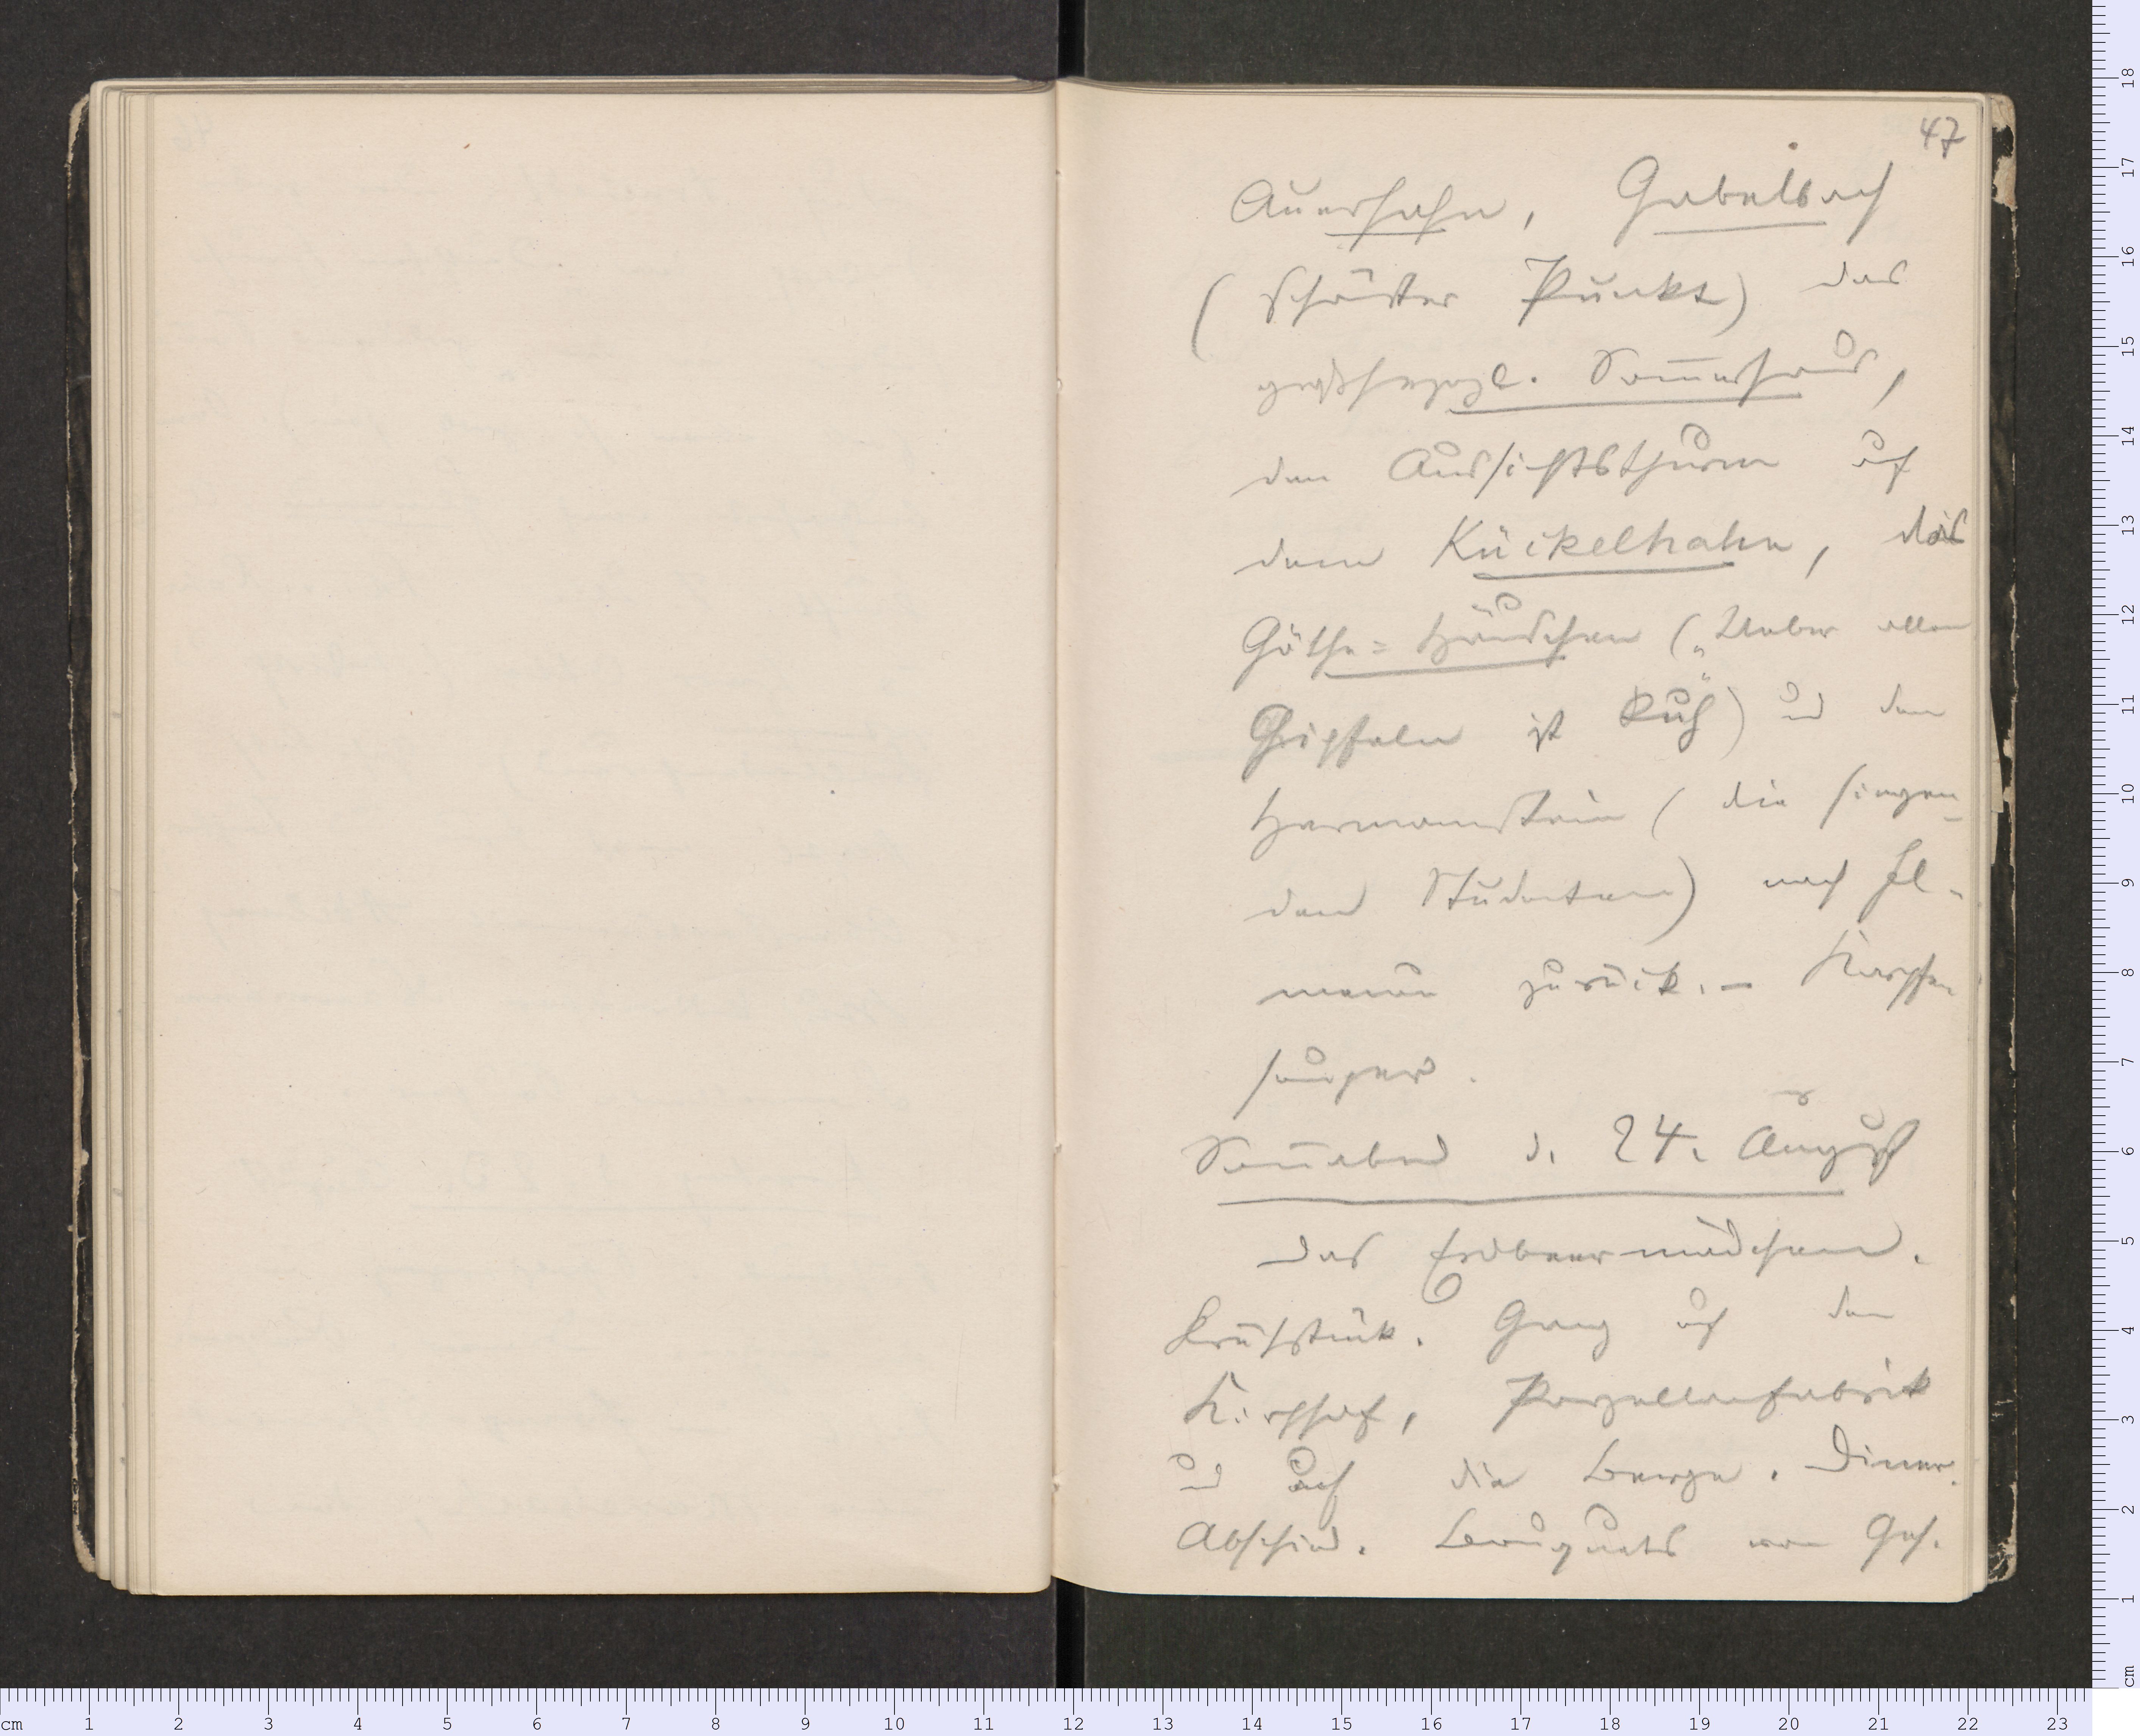 47
Auerhahn, Gabelbach
(Schönster Punkt) das
großherzogl. Sommerhaus,
den Aussichtsthurm auf
dem Kückelhahn, das
Göthe=Häuschen („Ueber allen
Gipfeln ist Ruh“) und den
Hermannstein (die singen-
den Studenten) nach Il-
menau zurück. – Karpfen
souper.
Sonnabend d. 24. August
Das Erdbeermädchen.
Frühstück. Gang auf den
Kirchhof, Porzellanfabrik
und auf die Berge. Diner.
Abschied. Bouquets von Geh.